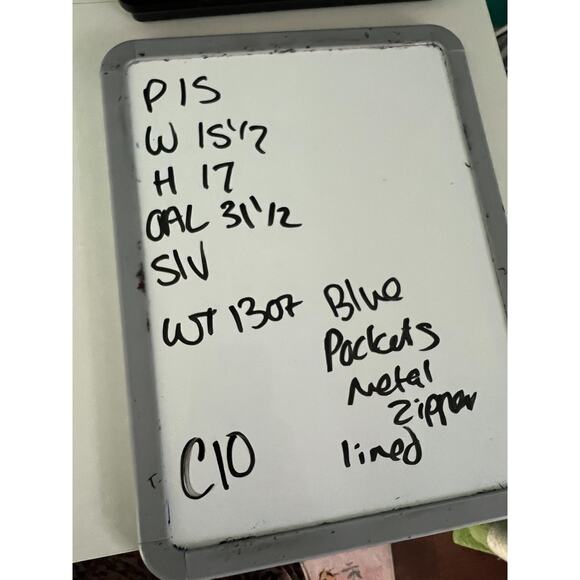 P 15
W 15 1/2
H 17
OAL 31 1/2
SIV
WT 13oz
Blue
Pockets
Metal
Zipper
lined
C10